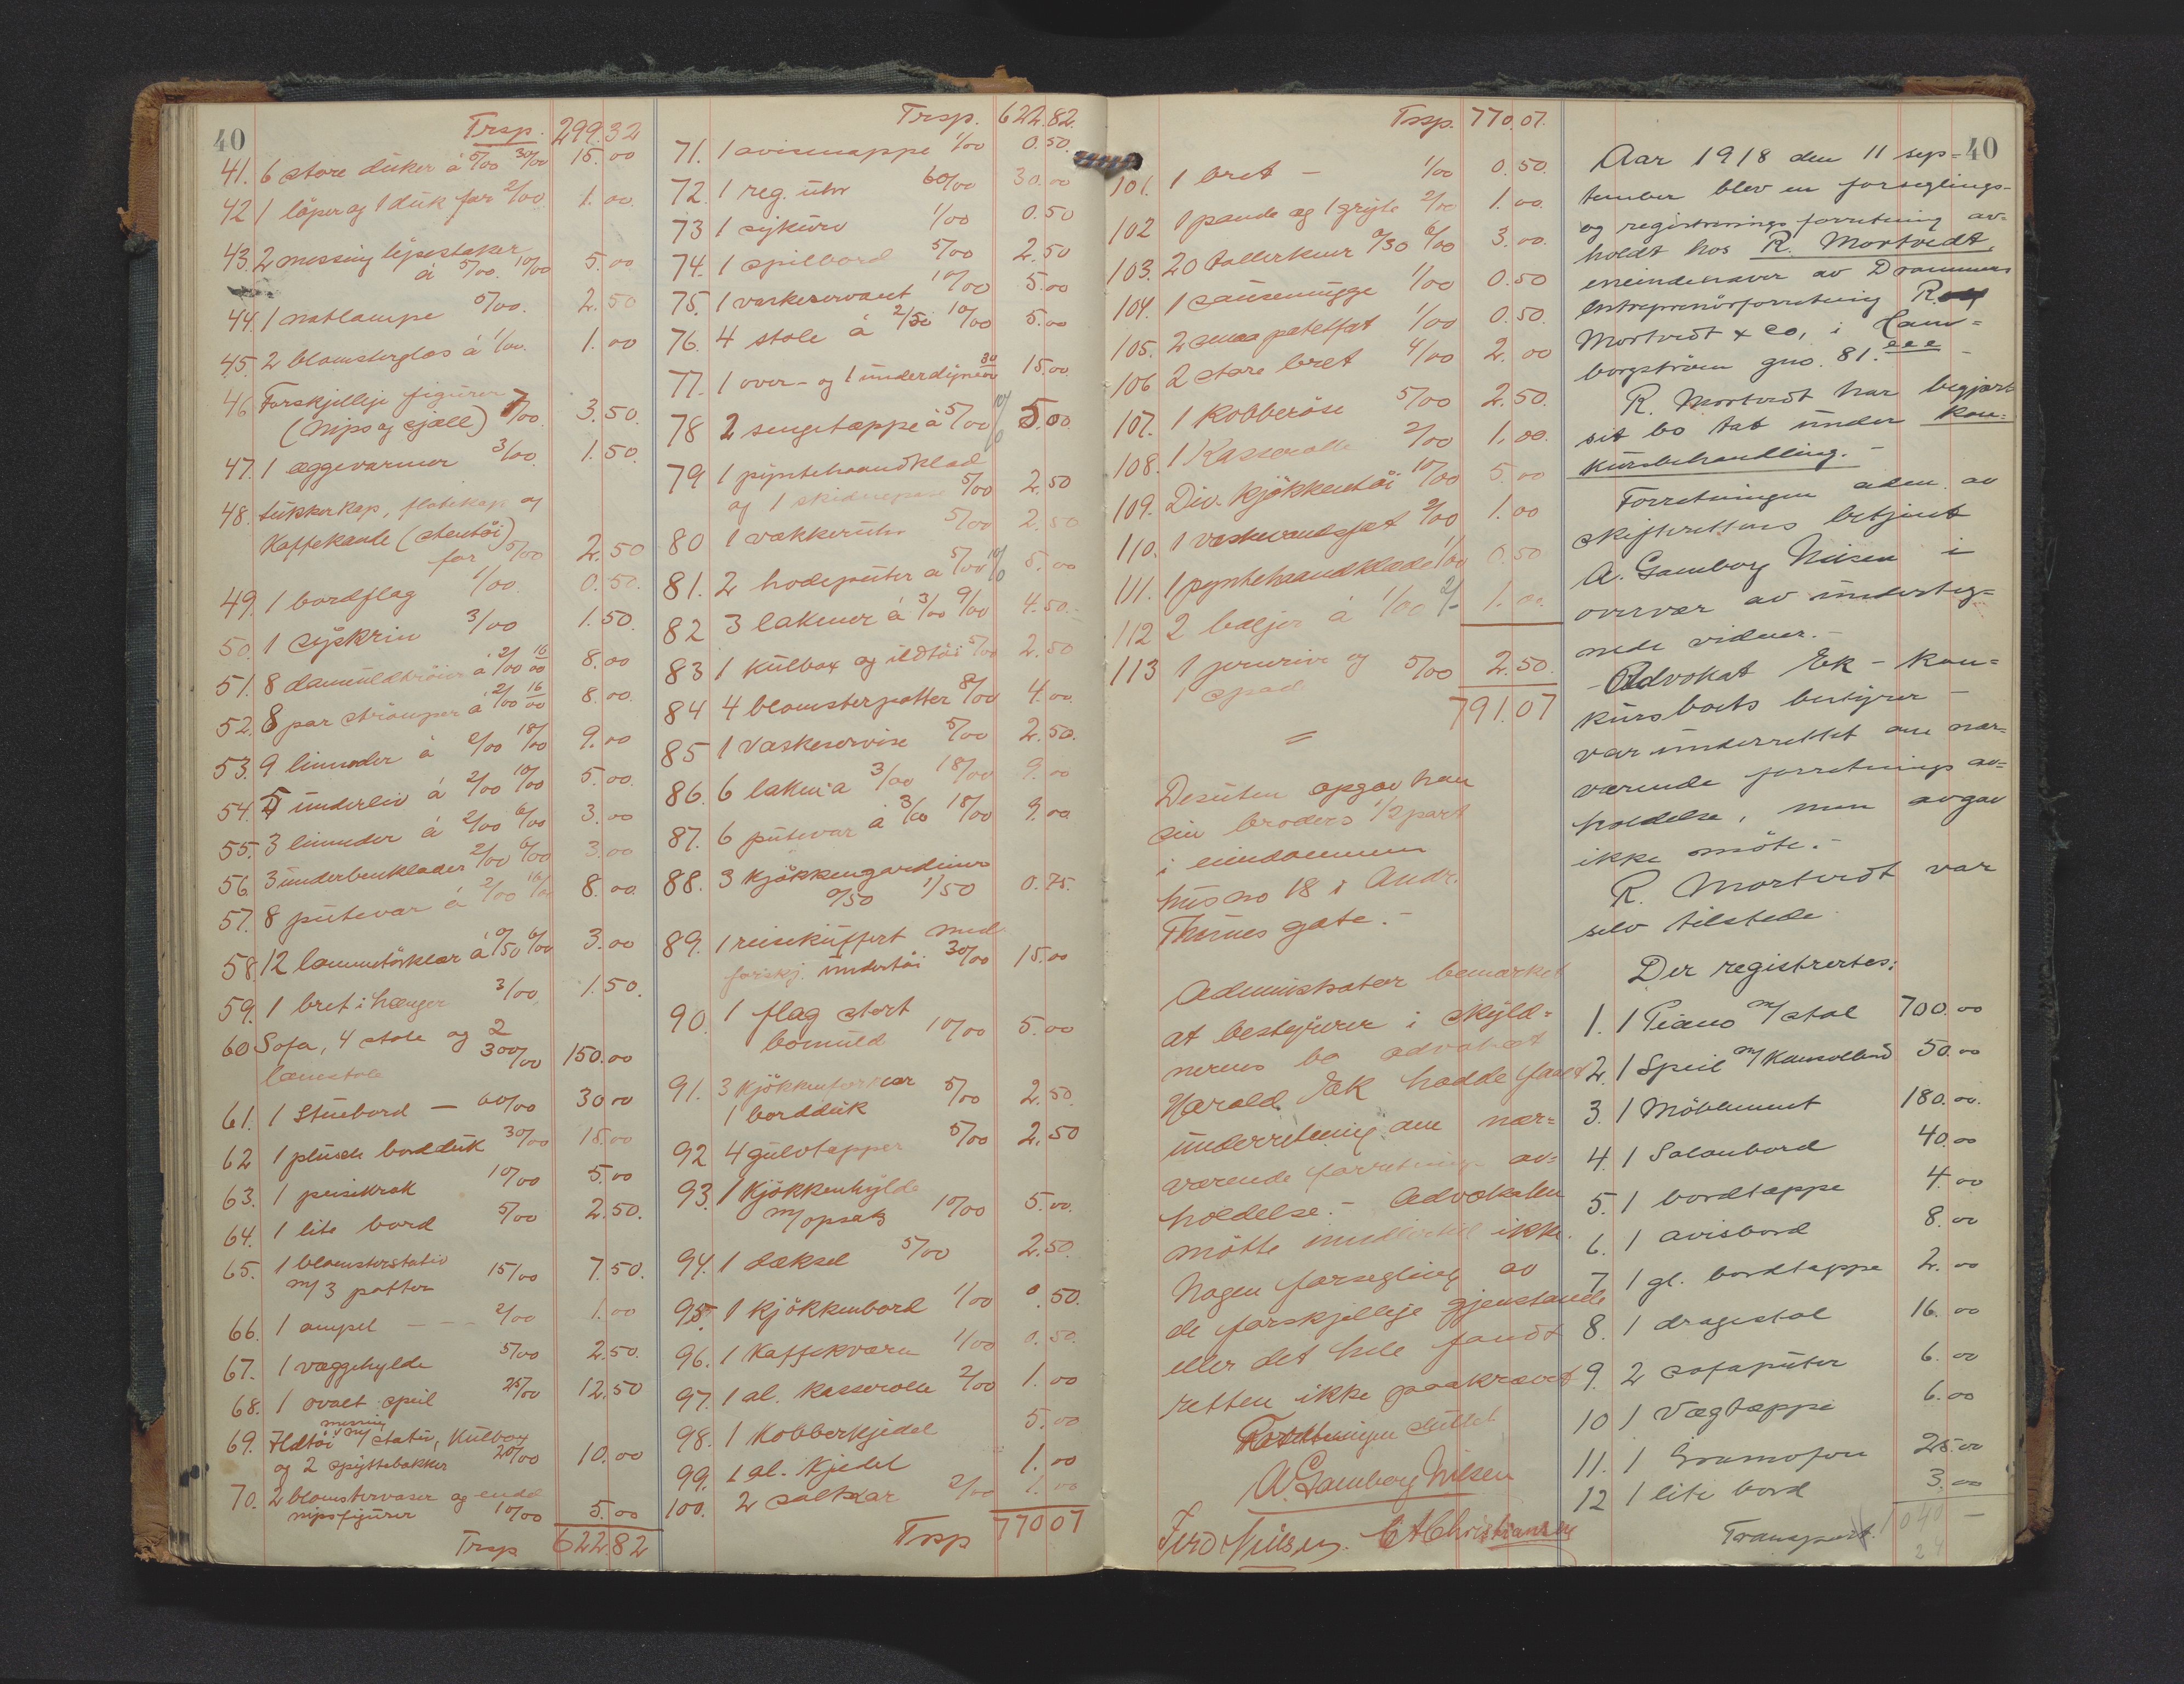 40
Trsp. 299.32
41. 6 store duker á 5/00 30/00 15.00
42 1 löper og 1 duk for 2/00 1.00
43. 2 messing lysestaker
á 5/00. 10/00 5.00
44. 1 natlampe 5/00. 2.50
45. 2 blomsterglas á 1/00. 1.00
46 Forskjellije figurer
(Nips og sjæll) 7/00. 3.50.
47. 1 æggevarmer 3/00. 1.50.
48. Sukkerkop, flötekop og
Kaffekande (stentöi)
for 5/00 2.50
49. 1 bordflag 1/00. 0.50.
50. 1 syskrin 3/00 1.50.
51. 8 dameuldtröier á 2/00 16/00 8.00
52. 8 par strömper á 2/00 16/00 8.00.
53. 9 linneder á 2/00 18/00 9.00
54. 5 underliv á 2/00 10/00 5.00.
55. 3 linneder á 2/00 6/00 3.00
56. 3 underbenklæder 2/00 6/00 3.00
57. 8 putevar á 2/00 16/00 8.00.
58. 12 lommetörklær á 0/50 6/00 3.00
59. 1 bret i hænger 3/00 1.50.
60 Sofa, 4 stole og 2
lænstole 300/00 150.00
61. 1 Stuebord — 60/00 30.00
62 1 plusch bordduk 30/00 15.00
63. 1 peiskrak 10/00 5.00
64. 1 lite bord 5/00 2.50.
65. 1 blomsterstativ
m/ 3 potter 15/00 7.50.
66. 1 ampel — — 2/00 1.00
67. 1 væggehylde 5/00 2.50.
68. 1 ovalt speil 25/00 12.50
messing
69. Ildtöi m/ stativ, Kulbox
og 2 spyttebakker 20/00 10.00
70. 2 blomstervaser og endel
nipsfigurer 10/00 5.00
Trsp 622.82
Trsp. 622.82.
71. 1 avismappe 1/00 0.50.
72. 1 reg. uhr 60/00 30.00
73 1 sykurv 1/00 0.50
74. 1 spilbord 5/00 2.50
75. 1 vaskeservant 10/00 5.00
76. 4 stole á 2/50 10/00 5.00
77. 1 over- og 1 underdyne 30/00 15.00.
78 2 sengetæppe á 5/00 10/0 5.00.
79 1 pyntehaandklæd
og 1 5/00 2.50
80 1 vækkeruhr 5/00 2.50
81. 2 hodeputer á 5/00 10/0 5.00
82 3 lakener á 3/00 9/00 4.50.
83 1 Kulbox og ildtöi 5/00 2.50
84 4 blomsterpotter 8/00 4.00.
85 1 Vaskeservise 5/00 2.50.
86. 6 laken á 3/00 18/00 9.00
87. 6 putevar á 3/00 18/00 9.00
88. 3 Kjökkengardiner
0/50 1/50 0.75.
89. 1 reisekuffert med
forskj. undertöi 30/00 15.00
90. 1 flag stort
bomuld 10/00 5.00
91. 3 Kjökkenforklær
1 bordduk 5/00 2.50.
92 4 gulvtepper 5/00 2.50
93. 1 Kjökkenhylde
m/ opsats 10/00 5.00.
94. 1 dæksel 5/00 2.50.
95. 1 kjökkenbord 1/00 0.50.
96. 1 Kaffekværn 1/00 0.50.
97. 1 al. Kasserolle 2/00 1.00
98. 1 Kobberkjedel 5.00
99. 1 al. Kjedel 1.00
100. 2 saltkar 2/00 1.00
Trsp 770.07
Trsp. 770.07.
101. 1 bret — 1/00 0.50.
102 1 pande og 1 gryte 2/00 1.00.
103. 20 tallerkner 0/30 6/00 3.00.
104. 1 sausemugge 1/00 0.50
105. 2 smaa potetfat 1/00 0.50.
106 2 store bret 4/00 2.00
107. 1 Kobberöse 5/00 2.50.
108. 1 Kasserolle 2/00 1.00.
109. Div. Kjökkentöi 10/00 5.00
110. 1 vaskevandsfat 2/00 1.00
111. 1 pyntehaandklæde 1/00 0.50
112 2 baljer á 1/00 2/- 1.00.
113 1 og 5/00 2.50.
1 spad
791.07
=
Desuten opgav han
sin broders 1/2 part
i eiendommen
hus no 18 i Andr.
Thunes gate. —
Administrator bemærket
at bestyrer i skyld=
nerens bo advokat
Harald Eek hadde faaet
underretning om nær=
værende forretnings av=
holdelse. — Advokaten
mötte imidlertid ikke.
Nogen forsegling av
de forskjellije gjenstande
eller det hele fandt
retten ikke paakrævet
Forretningen sluttet
A. Gamborg Nilsen
Ferd Nilsen. C A Christiansen
40
Aar 1918 den 11 sep=
tember blev en forseglings-
og registrerings forretning av=
holdt hos R. Mortvedt,
eneindehaver av Drammens
Entreprenörforretning R.
Mortvedt & Co, i Tam=
borgström gno. 81. eee —
R. Mortvedt har begjært
sit bo tat under kon=
kursbehandling. —
Forretningen adm. av
skifterettens betjent
A. Gamborg Nilsen i
overvær av underteg=
nede vidner. —
- Advokat Eek - kon=
kursboets bestyrer —
var underrettet om nær=
værende forretnings av=
holdelse, men avgav
ikke möte. —
R. Mortvedt var
selv tilstede
Der registrertes:
1. 1 Piano m/ stol 700.00
2. 1 Speil m/ Konsolbord 50.00
3. 1 Möblement 180.00.
4. 1 Salonbord 40.00
5. 1 bordtæppe 4.00
6. 1 avisbord 8.00
7. 1 gl. bordtæppe 2.00
8. 1 dragestol 16.00
9. 2 sofaputer 6.00
10 1 Vægtæppe 6.00
11. 1 Gramofon 25.00
12 1 lite bord 3.00
Transport. 1040 —
24